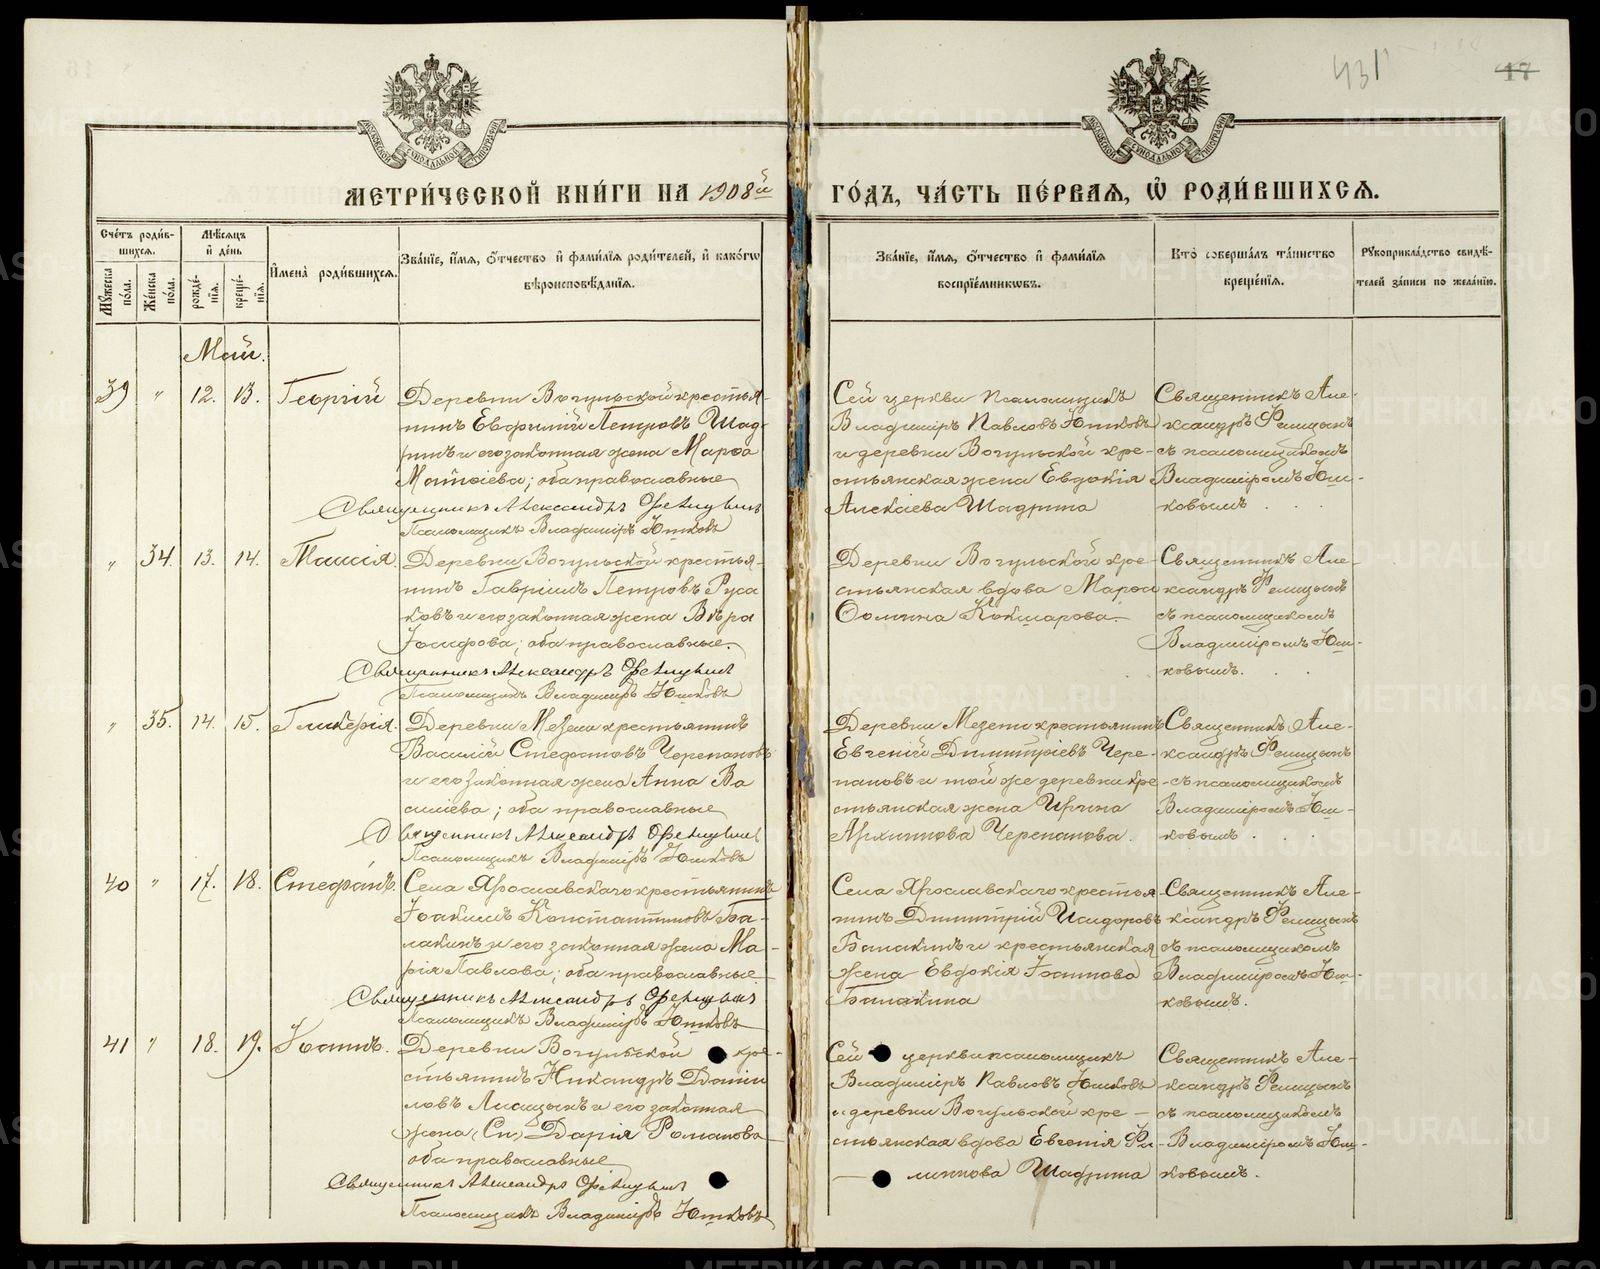 431
17
МОСКОВСКОЙ СѴНОДАЛЬНОЙ ТИПОГРАФІИ
МОСКОВСКОЙ СѴНОДАЛЬНОЙ ТИПОГРАФІИ
МЕТРИ́ЧЕСКОЙ КНИ́ГИ НА 1908й ГО́ДЪ, ЧА́СТЬ ПЕ́РВАЯ, Ѡ҆ РОДИ́ВШИХСЯ.
Сче́тъ роди́в-
шихся.
Му́жеска по́ла.
Же́нска по́ла.
Мѣ́сяцъ и҆ де́нь
рожде́-нїя.
креще́-нїя.
И҆мена̀ роди́вшихся.
Зва́нїе, и҆́мя, ѻ҆́тчество и҆ фами́лїя роди́телей, и҆ како́гѡ
вѣроисповѣ́данїя.
Зва́нїе, и҆́мя, ѻ҆́тчество и҆ фами́лїя
воспрїе́мникѡвъ.
Кто̀ соверша́лъ та́инство
креще́нїя.
Рукоприкла́дство свидѣ́-
телей за́писи по жела́нїю.
Май.
39 " 12. 13. Георгій
Деревни Вогульской крестья-
нинъ Евфимій Петровъ Шад-
ринъ и его законная жена Марѳа
Матѳіева; оба православные
Священникъ Александръ Фелицынъ
Псаломщикъ Владиміръ Юшковъ
Сей церкви псаломщикъ
Владиміръ Павловъ Юшковъ
и деревни Вогульской кре-
стьянская жена Евдокія
Алексіева Шадрина
Священникъ Але-
ксандръ Фелицынъ
съ псаломщикомъ
Владиміромъ Юш-
ковымъ.
" 34. 13. 14. Таисія.
Деревни Вогульской крестья-
нинъ Гавріилъ Петровъ Руса
ковъ и его законная жена Вѣра
Іосифова; оба православные.
Священникъ Александръ Фелицынъ
Псаломщикъ Владиміръ Юшковъ
Деревни Вогульской кре-
стьянская вдова Марѳа
Ѳомина Кокшарова.
Священникъ Але-
ксандръ Фелицынъ
съ псаломщикомъ
Владиміромъ Юш-
ковымъ.
" 35. 14. 15. Гликерія.
Деревни Мезени крестьянинъ
Василій Стефановъ Черепановъ
и его законная жена Анна Ва
силіева; оба православные
Священникъ Александръ Фелицынъ
Псаломщикъ Владиміръ Юшковъ
Деревни Мезени крестьянинъ
Евгеній Димитріевъ Чере-
пановъ и той же деревни кре-
стьянская жена Ирина
Архиппова Черепанова.
Священникъ Але-
ксандръ Фелицынъ
съ псаломщикомъ
Владиміромъ Юш-
ковымъ.
40 " 17. 18. Стефанъ.
Села Ярославскаго крестьянинъ
Іоакимъ Константиновъ Ба-
лакинъ и его законная жена Ма-
рія Павлова; оба православные
Священникъ Александръ Фелицынъ
Псаломщикъ Владиміръ Юшковъ
Села Ярославскаго крестья-
нинъ Димитрій Исидоровъ
Балакинъ и крестьянская
жена Евдокія Іоаннова
Балакина
Священникъ Але-
ксандръ Фелицынъ
съ псаломщикомъ
Владиміромъ Юш-
ковымъ.
41 " 18. 19. Іоаннъ.
Деревни Вогульской кре-
стьянинъ Никандръ Даніи
ловъ Лисицынъ и его законная
жена (Сп) Дарія Романова
оба православные
Священникъ Александръ Фелицынъ
Псаломщикъ Владиміръ Юшковъ
Сей церкви псаломщикъ
Владиміръ Павловъ Юшковъ
и деревни Вогульской кре-
стьянская вдова Евгенія Фи-
липпова Шадрина
Священникъ Але-
ксандръ Фелицынъ
съ псаломщикомъ
Владиміромъ Юш-
ковымъ.
METRIKI.GASO-URAL.RU